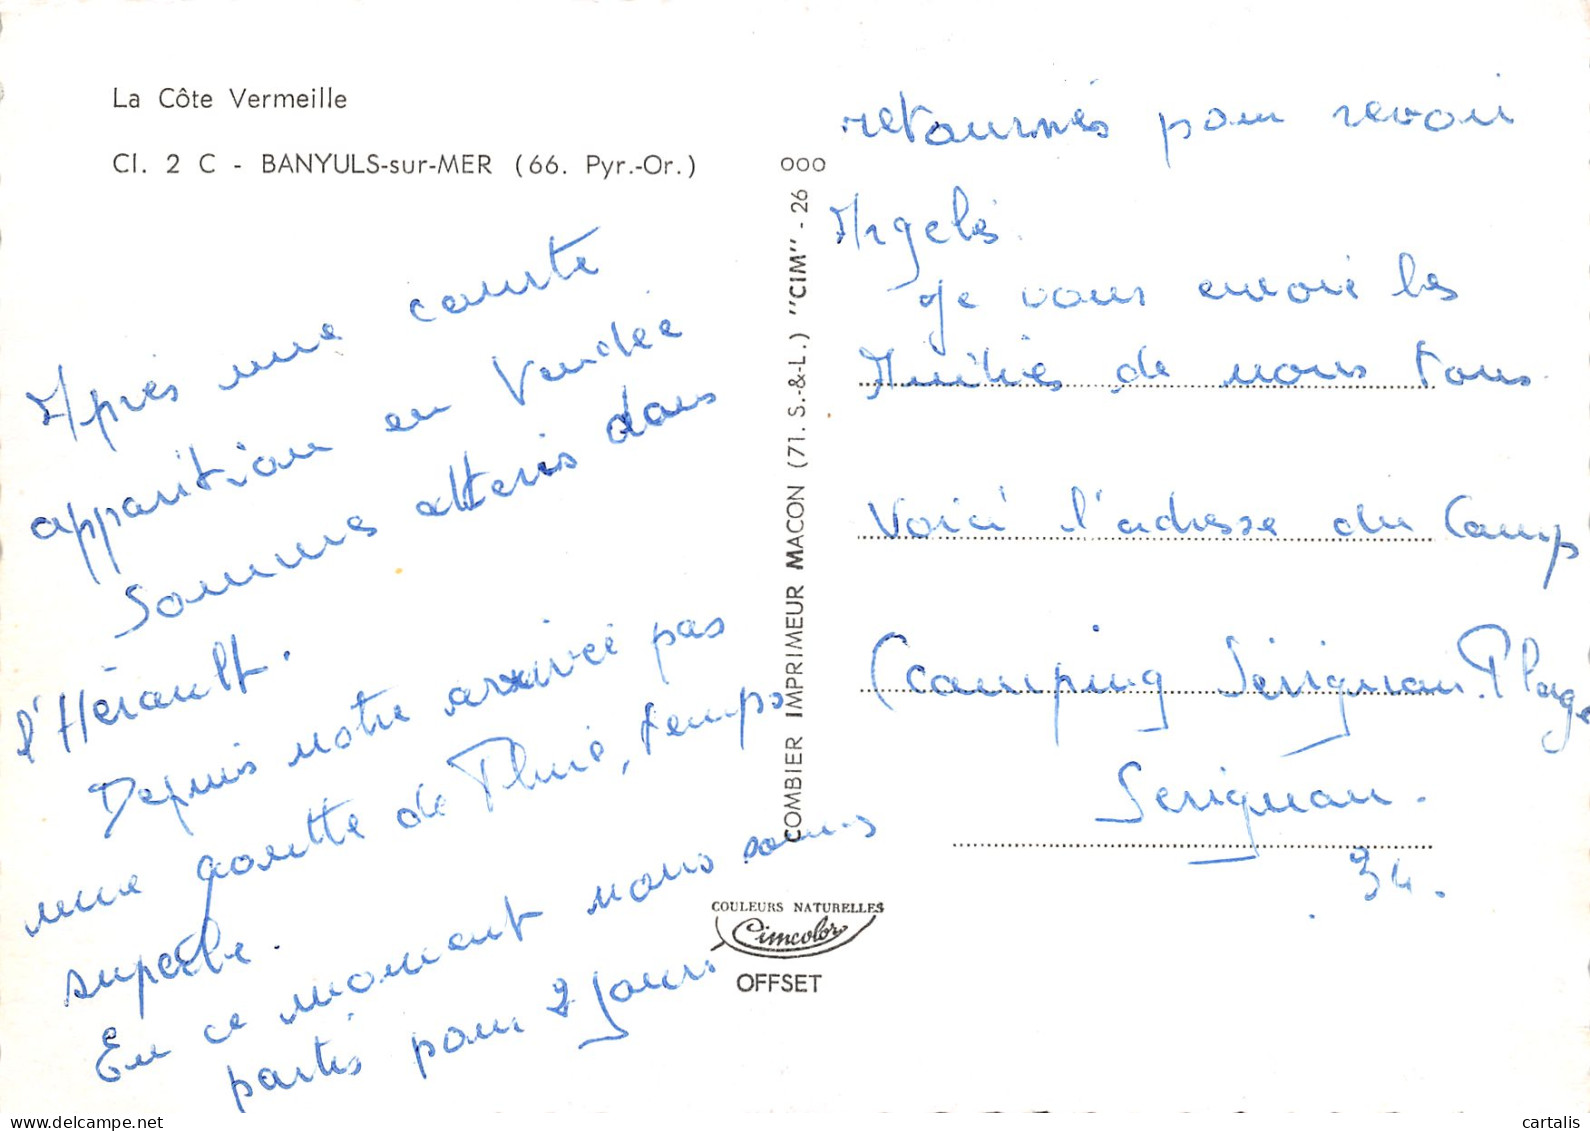 La Côte Vermeille
Cl. 2 C - BANYULS-sur-MER (66. Pyr.-Or.)
Après une courte
apparition en Vendée
Sommes atteris dans
l'Hérault.
Depuis notre arrivée pas
une goutte de Pluie, temps
superbe.
En ce moment nous sommes
partis pour 2 jours
000
COMBIER IMPRIMEUR MACON (71. S.-&-L.) "CIM" - 26
COULEURS NATURELLES
Cimcolor
OFFSET
retournés pour revoir
Argelès.
Je vous envoie les
Amitiés de nous tous
Voici l'adresse du Camp
(Camping Sérignan.Plage
Serignan.
34.
www.delcampe.net
cartalis